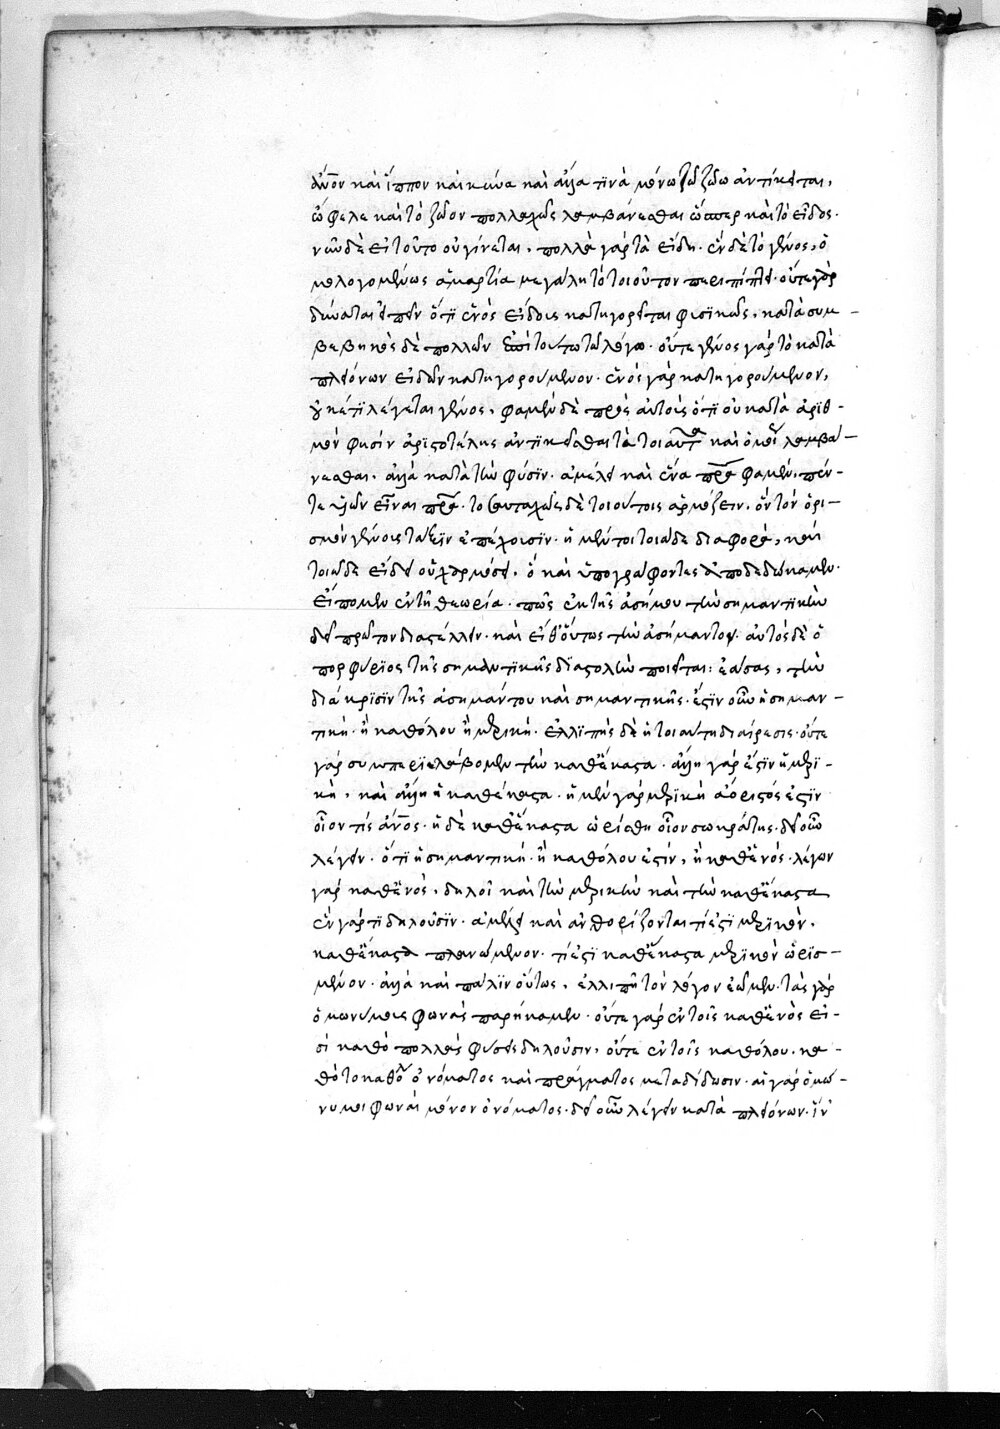 ἄνον καὶ ἵππον καὶ κύνα καὶ ἄλλα τινὰ μόνω τῶ ζώω ἀντίκειται,
ὤφειλε καὶ τὸ ζῶον πολλαχῶς λαμβάνεσθαι ὥσπερ καὶ τὸ εἶδος.
νῦν δὲ εἰ τοῦτο οὐ γίνεται, πολλὰ γὰρ τὰ εἴδη. ἓν δὲ τὸ γένος, ὁ
μολογουμένως ἁμαρτία μεγάλη τὸ τοιοῦτον περιπίπτει. οὔτε γὰρ
δύναται εἰπεῖν ὅτι ἑνὸς εἴδους κατηγορεῖται φυσικῶς, κατὰ συμ
βεβηκὸς δὲ πολλῶν ἐπὶ τούτω τῶ λόγω. οὔτε γένος γὰρ τὸ κατὰ
πλειόνων εἰδῶν κατηγορούμενον. ἑνὸς γὰρ κατηγορούμενον,
οὐκέτι λέγεται γένος. φαμὲν δὲ πρὸς αὐτοὺς ὅτι οὐ κατὰ ἀριθ-
μόν φησιν ἀριστοτέλης ἀντικεῖσθαι τὰ τοιαῦτα καὶ ὁμοῦ λαμβά-
νεσθαι. ἀλλὰ κατὰ τὴν φύσιν. ἀμέλει καὶ ἕνα φαμὲν, πέν-
τε ζώων εἶναι. το δὲ τοιούτοις ἁρμόζειν. ὃν τὸν ὁρι-
σμὸν γένους τάξιν ἐπέχουσιν. ἡ μέν τοι τοιάδε διαφορὰ, καὶ
τοιῶδε εἴδει οὐχ ἁρμόσει. ὃ καὶ ὑπογράφοντες ἀποδεδώκαμεν.
εἴπομεν ἐν τῆ θεωρία. πῶς ἐκ τῆς ἀσήμου τὴν σημαντικὴν
δεῖ πρῶτον διαστέλλειν. καὶ εἶθ' οὕτως τὴν ἀσήμαντον. αὐτὸς δὲ ὁ
πορφύριος τῆς σημαντικῆς διαστολὴν ποιεῖται: ἐάσας, τὴν
διάκρισιν τῆς ἀσημάντου καὶ σημαντικῆς. ἔστιν οὖν ἡ σημαν-
τικὴ. ἢ καθόλου ἢ μερικὴ. ἐλλιπὴς δὲ ἡ τοιαύτη διαίρεσις. οὔτε
γὰρ συμπεριελάβομεν τὴν καθ' ἕκαστα. ἄλλη γάρ ἐστιν ἡ μερι-
κὴ, καὶ ἄλλη ἡ καθ' έκαστα. ἡ μὲν γὰρ μερικὴ ἀόριστός ἐστιν
οἷον τίς ἄνος. ἡ δὲ καθ' ἕκαστα ὡρίσθη οἷον σωκράτης. δεῖ οὖν
λέγειν. ὅτι ἡ σημαντικὴ. ἢ καθόλου ἐστίν, ἢ καθ' ἑνὸς. λέγων
γὰρ καθ' ἑνὸς, δηλοῖ καὶ τὴν μερικὴν καὶ τὴν καθ' ἕκαστα
ἓν γάρ τι δηλοῦσιν. ἀμέλει καὶ ἀνθορίζονται τί ἐστι μερικὸν.
καθ' ἕκαστα πλανώμενον. τί ἐστι καθ' ἕκαστα μερικὸν ὡρισ-
μένον. ἀλλὰ καὶ πάλιν οὕτως, ἐλλιπῆ τὸν λόγον ἐῶμεν. τὰς γὰρ
ὁμωνύμους φωνὰς παρήκαμεν. οὔτε γὰρ ἐν τοῖς καθ' ἑνὸς εἰ-
σὶ καθὸ πολλὰς φύσεις δηλοῦσιν, οὔτε ἐν τοῖς καθόλου. κα-
θὸ τὸ καθόλου ὀνόματος καὶ πράγματος μεταδίδωσιν. αἱ γὰρ ὁμώ-
νυμοι φωναὶ μόνον ὀνόματος. δεῖ οὖν λέγειν κατὰ πλειόνων. ἵν'